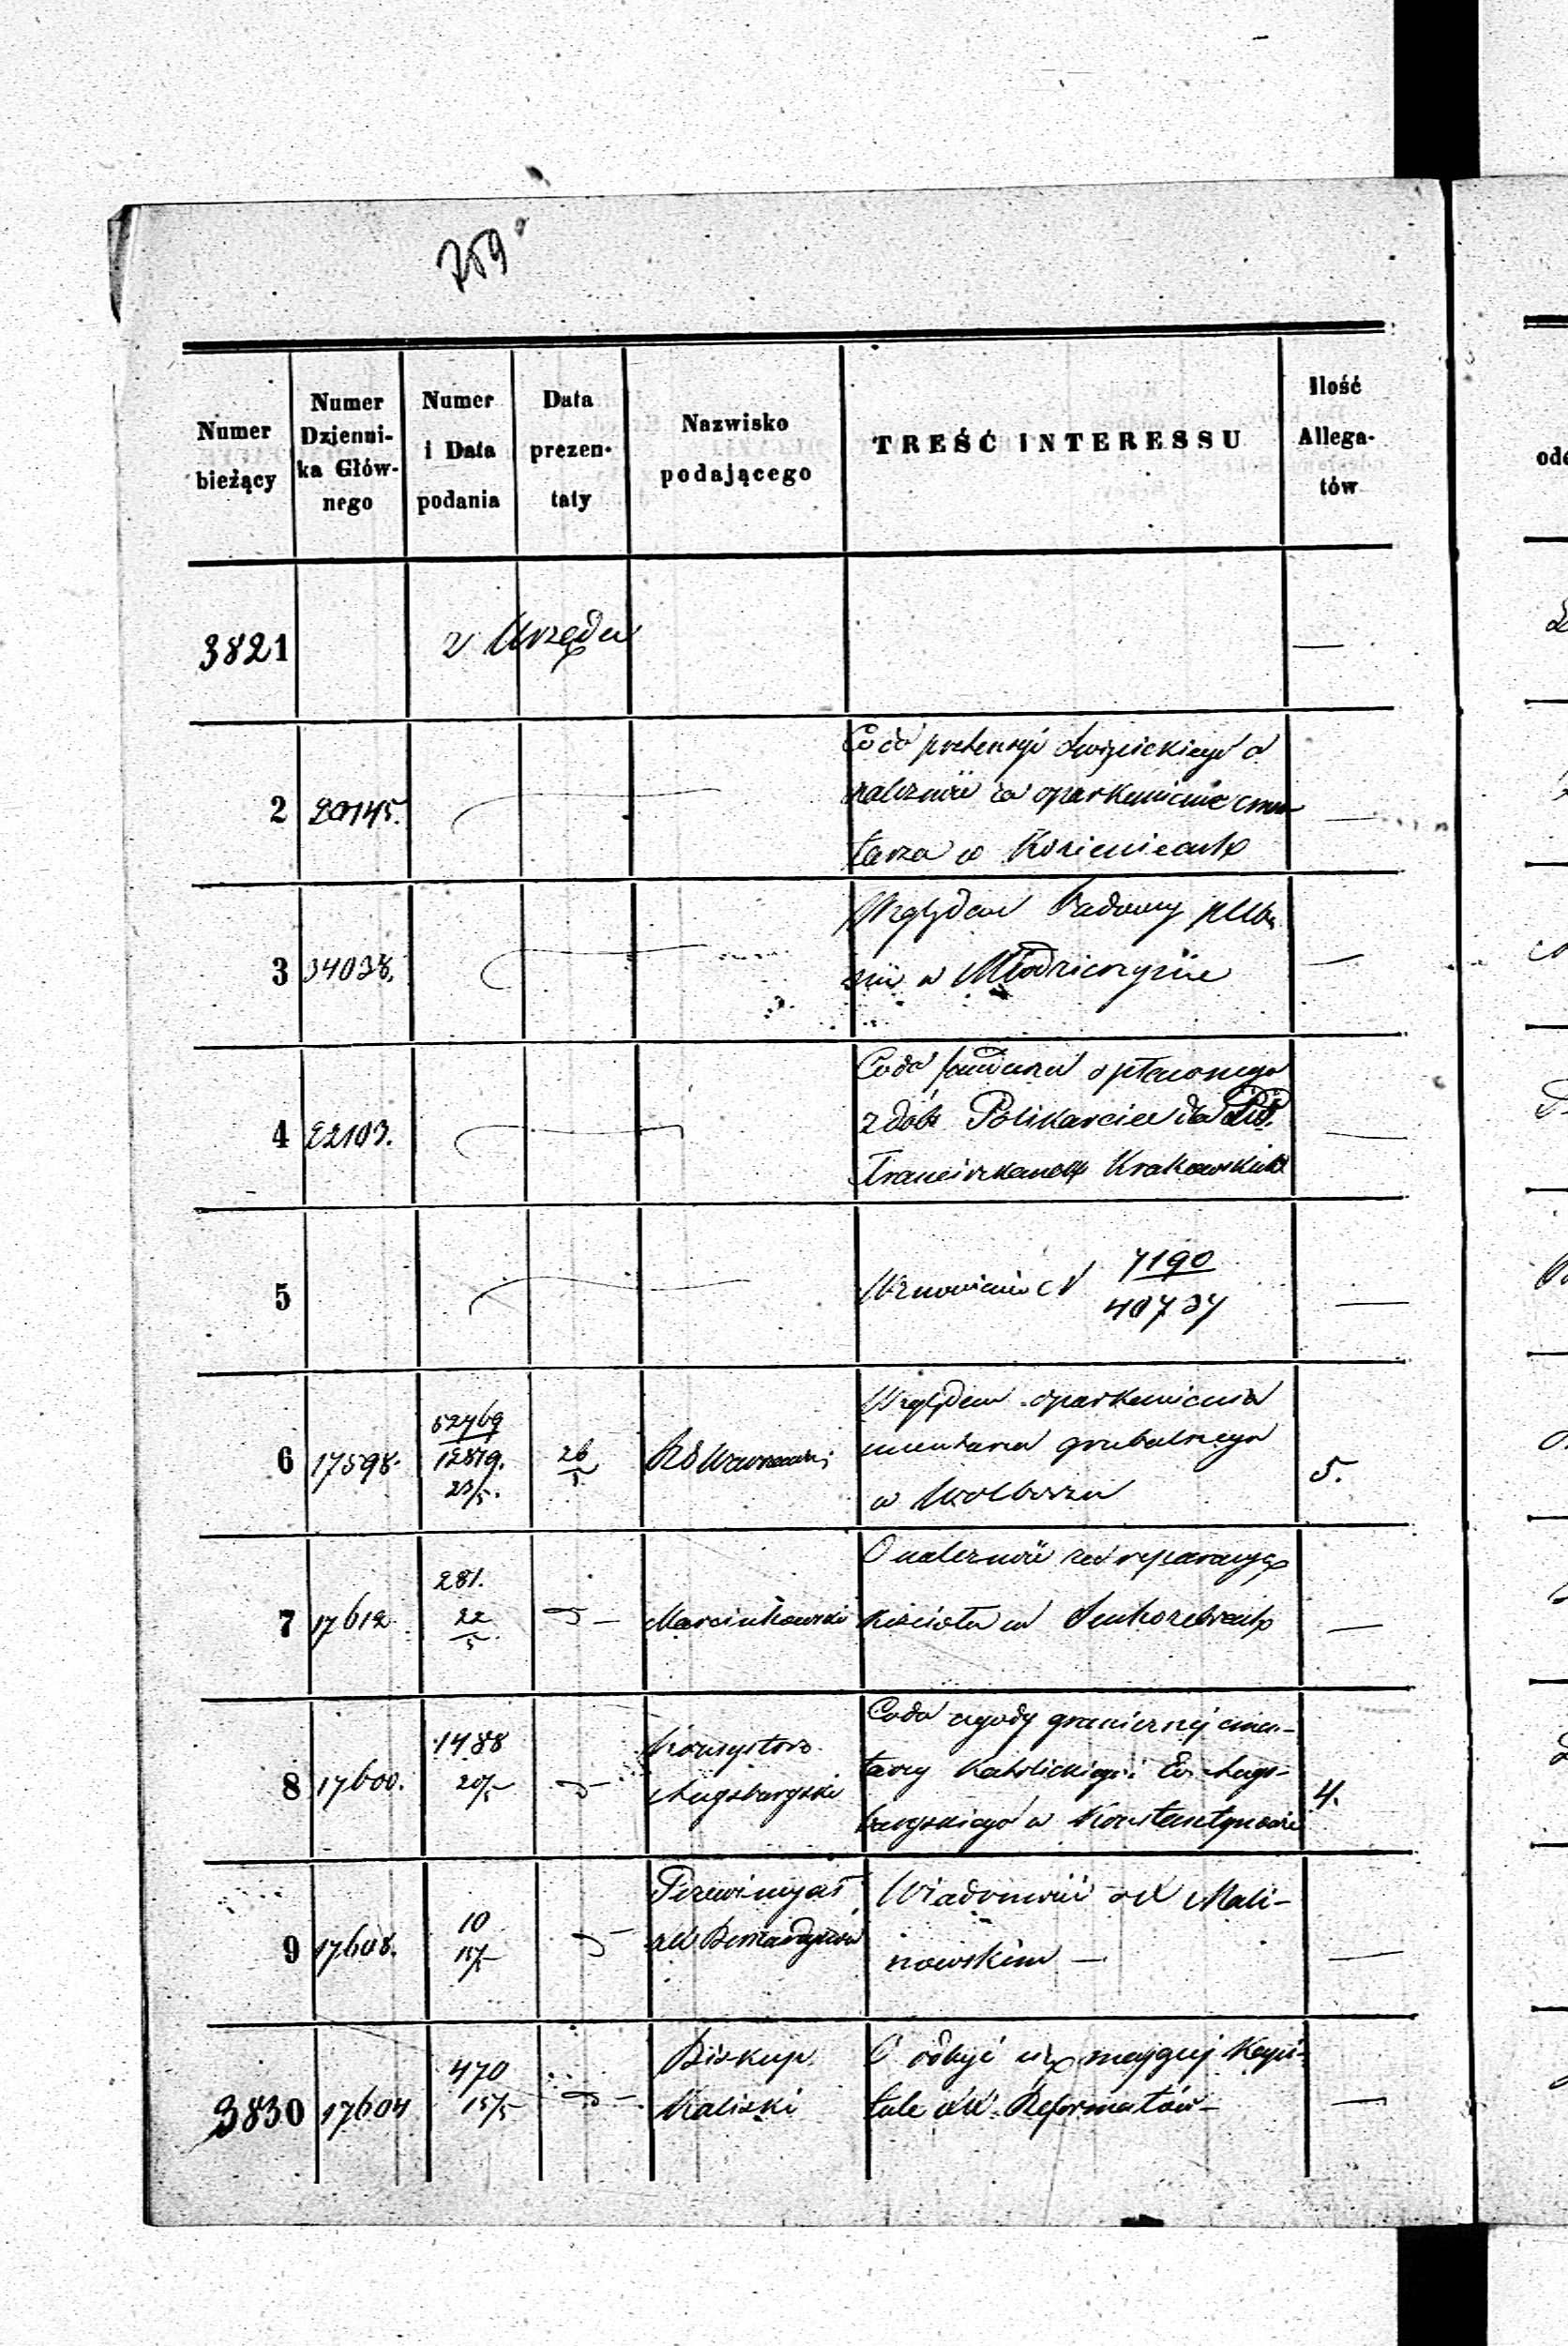 259
Numer bieżący
Numer Dzienni-ka Głów-nego
Numer i Data podania
Data prezen-taty
Nazwisko podającego
TREŚĆ INTERESSU
Ilość Allega-tów
3821 z Urzędu —
2 20145.
Co do pretensyi o
należność za oparkanienie cmen
tarza w Kozienicach —
3 34038.
Względem budowy pleba
nii w Młodzieszynie —
4 22103.
Co do opłaconego
z dóbr Polikarcice dla
Franciszkanów Krakowskich —
5
Wznowienie N 7190
40737 —
6 17598. 52769
12819. 23/5. 26/5
Względem oparkanienia
cmentarza grzebalnego
w Wolborzu
5.
7 17612 281. 22/5 D— Marcinkowski
O należność za reparacyę
kościoła w Suchożebrach —
8 17600. 1488 20/5 D—
Konsystorz
Augsburgski
Co do ugody granicznej cmen-
tarzy Katolickiego i Ew. Augs-
burgskiego w Konstantynowie
4.
9 17608. 10 15/5 D—
Bernardynów
Wiadomość o X Mali-
nowskim — —
3830 17604 470 15/5 D—
Biskup
Kaliski
O odbyć się mającej Kapi-
tule XX. Reformatów— —